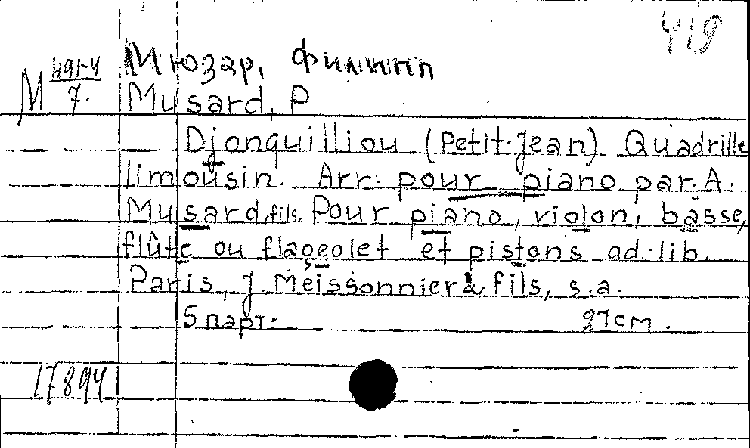 419
М 491-4/7. Мюзар, Филипп
Musard, P
Djanquilliou (Petit-Jean). Quadrille
limousin. Arr. pour piano par A.
Musard, fils. Pour piano, violon, basse,
flûte ou flageolet et pistons ad. lib.
Paris, J. Meissonnier & fils, s.a.
5 парт. 27 см.
17894